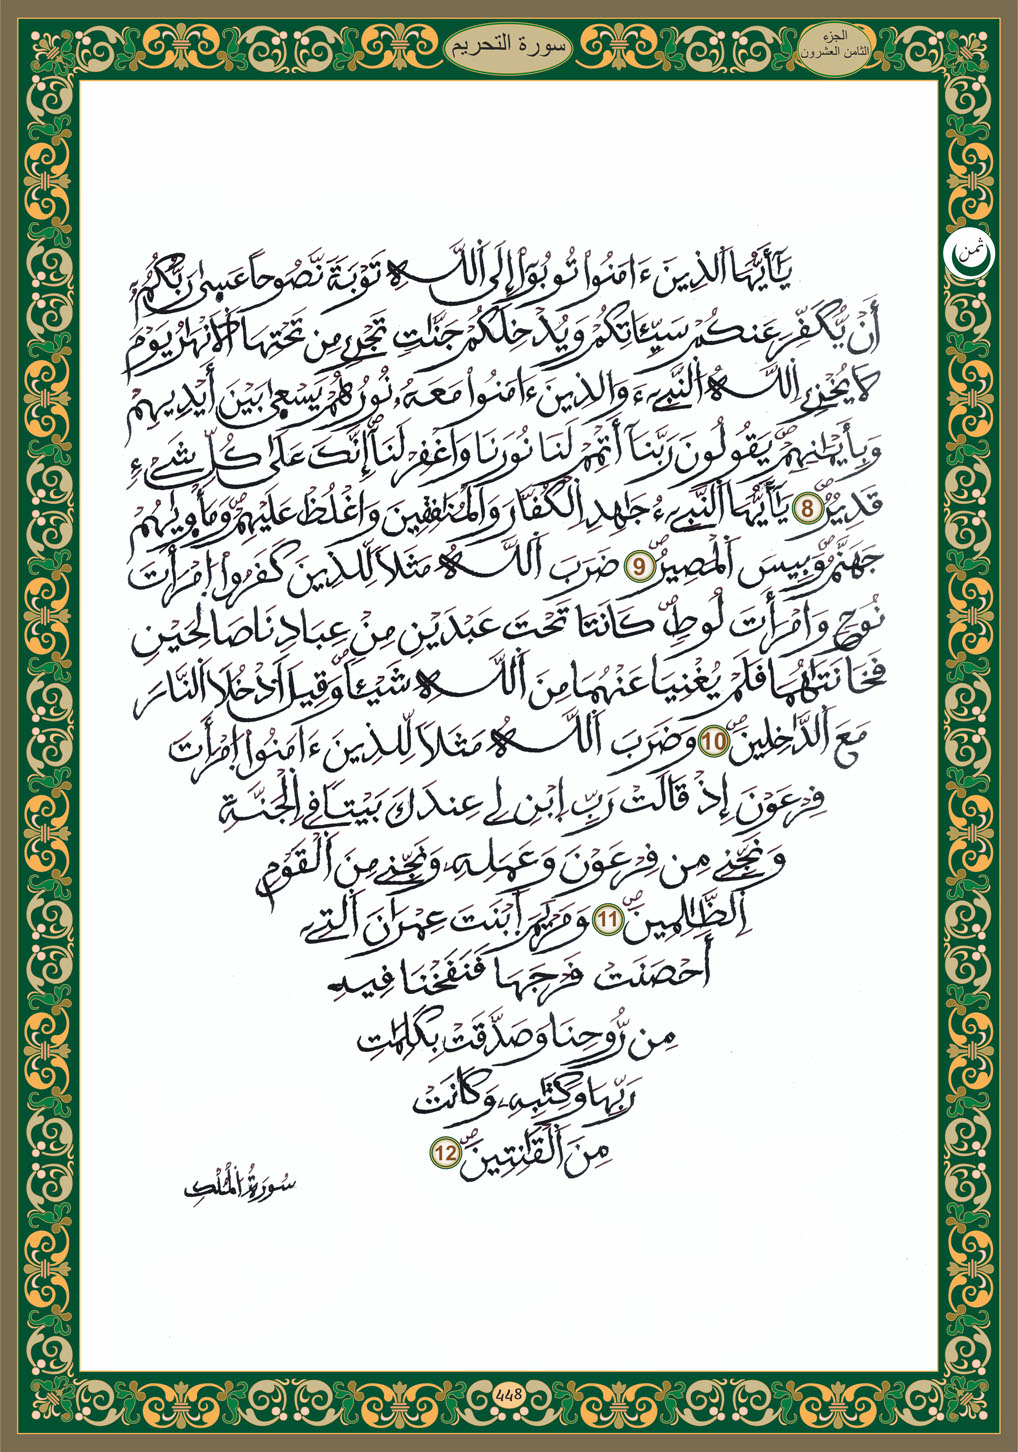 سورة التحريم
الجزء
الثامن العشرون
ثمن
يَٰٓأَيُّهَا اَ۬لذِينَ ءَامَنُوا تُوبُوٓا إِلَى اَ۬للَّهِ تَوْبَةٗ نَّصُوحاً عَسٰى رَبُّكُمُۥٓ
أَنْ يُّكَفِّرَ عَنكُمْ سَيِّـَٔاتِكُمْ وَيُدْخِلَكُمْ جَنَّٰتٖ تَجْرِے مِن تَحْتِهَا اَ۬لَانْهَٰرُ يَوْمَ
لَا يُخْزِے اِ۬للَّهُ اُ۬لنَّبِےٓءَ وَالذِينَ ءَامَنُوا مَعَهُۥ نُورُهُمْ يَسْعٰى بَيْنَ أَيْدِيهِمْ
وَبِأَيْمَٰنِهِمْ يَقُولُونَ رَبَّنَآ أَتْمِمْ لَنَا نُورَنَا وَاغْفِرْ لَنَآ إِنَّكَ عَلَىٰ كُلِّ شَےْءٖ
قَدِيرٞ 8 يَٰٓأَيُّهَا اَ۬لنَّبِےٓءُ جَٰهِدِ اِ۬لْكُفَّارَ وَالْمُنَٰفِقِينَ وَاغْلُظْ عَلَيْهِمْ وَمَأْوٜيٰهُمْ
جَهَنَّمُ وَبِيسَ اَ۬لْمَصِيرُ 9 ضَرَبَ اَ۬للَّهُ مَثَلاٗ لِّلذِينَ كَفَرُوا اُ۪مْرَأَتَ
نُوحٖ وَامْرَأَتَ لُوطٖ كَانَتَا تَحْتَ عَبْدَيْنِ مِنْ عِبَادِنَا صَٰلِحَيْنِ
فَخَانَتَٰهُمَا فَلَمْ يُغْنِيَا عَنْهُمَا مِنَ اَ۬للَّهِ شَيْـٔاٗ وَقِيلَ اَ۟دْخُلَا اَ۬لنَّارَ
مَعَ اَ۬لدَّٰخِلِينَ 10 وَضَرَبَ اَ۬للَّهُ مَثَلاٗ لِّلذِينَ ءَامَنُوا اُ۪مْرَأَتَ
فِرْعَوْنَ إِذْ قَالَتْ رَبِّ اِ۪بْنِ لِے عِندَكَ بَيْتاٗ فِے اِ۬لْجَنَّةِ
وَنَجِّنِے مِن فِرْعَوْنَ وَعَمَلِهِۦ وَنَجِّنِے مِنَ اَ۬لْقَوْمِ
اِ۬لظَّٰلِمِينَ 11 وَمَرْيَمَ اَ۪بْنَتَ عِمْرَٰنَ اَ۬لتِےٓ
أَحْصَنَتْ فَرْجَهَا فَنَفَخْنَا فِيهِ
مِن رُّوحِنَا وَصَدَّقَتْ بِكَلِمَٰتِ
رَبِّهَا وَكِتَٰبِهِۦ وَكَانَتْ
مِنَ اَ۬لْقَٰنِتِينَ 12
سُورَةُ اُ۬لْمُلْكِ
448